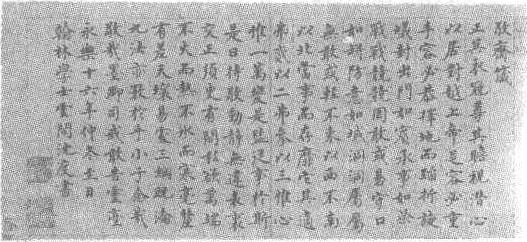 敬齋箴
正其衣冠尊其瞻視潛心
以居對越上帝足容必重
手容必恭擇地而蹈折旋
蟻封出門如賓承事如祭
戰戰兢兢罔敢或易守口
如缾防意如城洞洞屬屬
無敢或輕不東以西不南
以北當事而存靡他其適
弗貳以二弗參以三惟心
惟一萬變是監從事於斯
是曰持敬動靜無違表裏
交正須臾有間私欲萬端
不火而熱不冰而寒毫釐
有差天壤易處三綱既淪
九法亦斁於乎小子念哉
敬哉墨卿司戒敢告靈臺
永樂十六年仲冬至日
翰林學士雲間沈度書